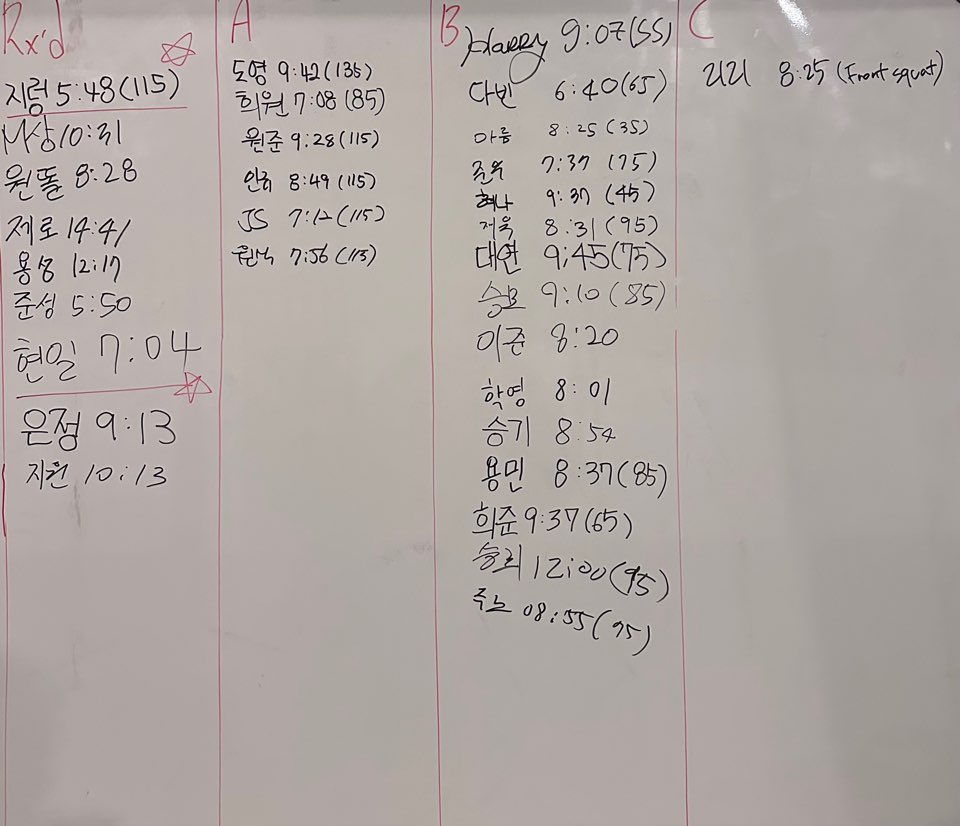 Rx'd
지렁 5:48 (115)
상 10:31
원돌 8:28
제로 14:41
용성 12:17
준성 5:50
현일 7:04
은정 9:13
지원 10:13
A
도영 9:42 (135)
희원 7:08 (85)
원준 9:28 (115)
8:49 (115)
JS 7:12 (115)
7:56 (115)
B
Harry 9:07 (55)
다빈 6:40 (65)
아름 8:25 (35)
준욱 7:37 (75)
혜나 9:37 (45)
저욱 8:31 (95)
대연 9:45 (75)
9:10 (85)
이준 8:20
학영 8:01
승기 8:54
용민 8:37 (85)
희준 9:37 (65)
승리 12:00 (95)
주노 08:55 (95)
C
8:25 (Front squat)